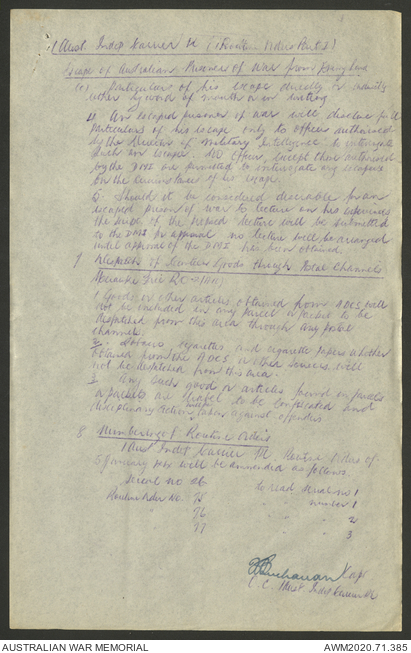 (Aust. Indep Carrier
Escape of Australian Prisoner of War from
(c) Particulars of his escape directly or
either by word of mouth or in writing
4 An escaped prisoner of war will disclose full
particulars of his escape only to officers authorised
by the Director of Military Intelligence to interrogate
such an escapee. No officer, except those authorised
by the DMI are permitted to interrogate any escapee
on the circumstances of his escape.
5. Should it be considered desirable for an
escaped prisoner of war to lecture on his experiences
the of the proposed lecture will be submitted
to the DMI for approval no lecture will be arranged
until approval of the DMI has been obtained.
7 Despatch of Goods through Postal Channels
1 Goods or other articles obtained from will
not be included in any parcel or packet to be
despatched from this area through any postal
channels.
2. Tobacco, cigarettes, and cigarette papers whether
obtained from the or other sources will
not be despatched from this area.
3 Any such goods or articles found in parcels
or packets are liable to be confiscated and
disciplinary action taken against offenders
8 Numbering of Routine Orders
1 Aust Indep Carrier Routine Orders of
5 January will be amended as follows
Serial no 26 to read serial no 1
Routine Order No. 75 number 1
76 " " 2
77 " " 3
Buchanan Capt
Aust Indep
AUSTRALIAN WAR MEMORIAL
AWM2020.71.385